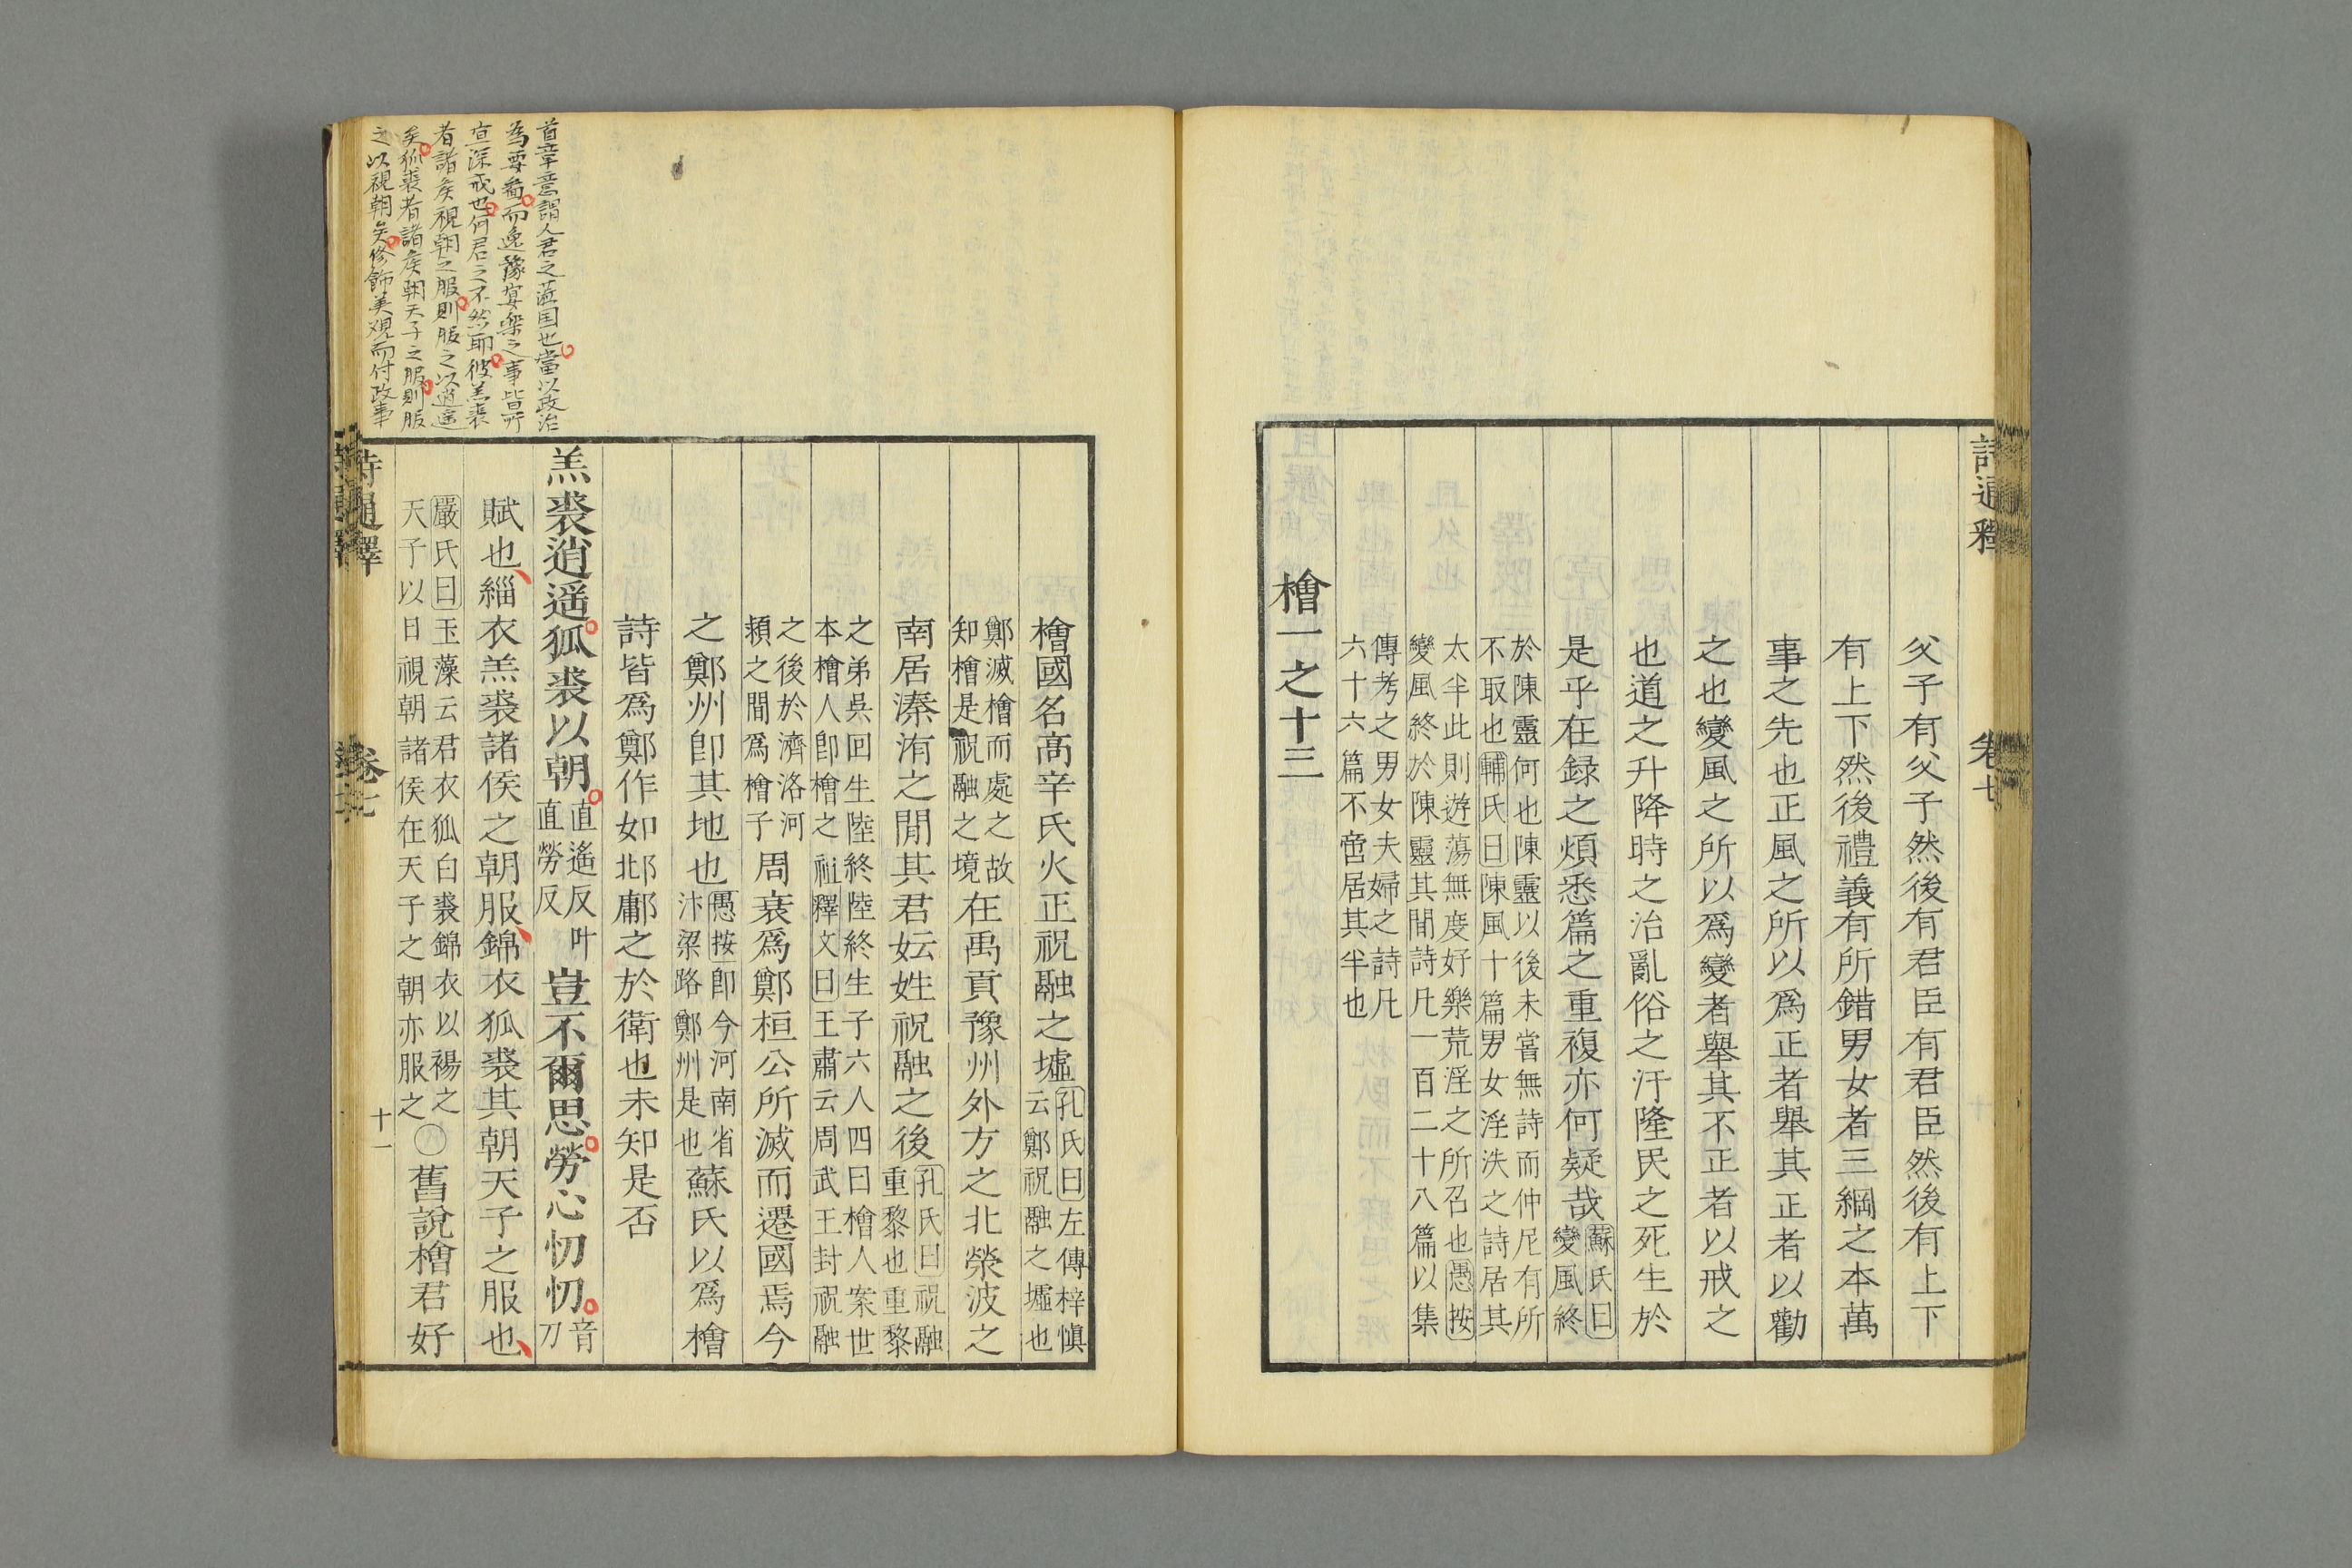 詩通釋
卷七
父子有父子然後有君臣有君臣然後有上下
有上下然後禮義有所錯男女者三綱之本萬
事之先也正風之所以爲正者舉其正者以勸
之也變風之所以爲變者舉其不正者以戒之
也道之升降時之治亂俗之汙隆民之死生於
是乎在録之煩悉篇之重複亦何疑哉
蘇氏曰
變風終
於陳靈何也陳靈以後未嘗無詩而仲尼有所
不取也輔氏曰陳風十篇男女淫泆之詩居其
太半此則遊蕩無度好樂荒淫之所召也愚按
變風終於陳靈其間詩凡一百二十八篇以集
傳考之男女夫婦之詩凡
六十六篇不啻居其半也
檜一之十三
檜國名高辛氏火正祝融之墟
孔氏曰左傳梓慎
云鄭祝融之墟也
鄭滅檜而處之故
知檜是祝融之境
在禹貢豫州外方之北滎波之
南居溱洧之間其君妘姓祝融之後
孔氏曰祝融
重黎也重黎
之弟吳回生陸終陸終生子六人四曰檜人案世
本檜人即檜之祖釋文曰王肅云周武王封祝融
之後於濟洛河
頴之間爲檜子
周衰爲鄭桓公所滅而遷國焉今
之鄭州即其地也
愚按即今河南省
汴梁路鄭州是也
蘇氏以爲檜
詩皆爲鄭作如邶鄘之於衛也未知是否
羔裘逍遥狐裘以朝
直遙反叶
直勞反
豈不爾思勞心忉忉
音
刀
賦也緇衣羔裘諸侯之朝服錦衣狐裘其朝天子之服也
嚴氏曰玉藻云君衣狐白裘錦衣以裼之
天子以日視朝諸侯在天子之朝亦服之
〇舊說檜君好
詩通釋
卷七
十一
首章意謂人君之蒞国也當以政治
為要啚而逸豫宴樂之事皆所
宜深戒也何君之不然耶彼羔裘
者諸矦視朝之服則服之以逍遥
矣狐裘者諸矦朝天子之服則服
之以視朝矣修飾美观而付政事